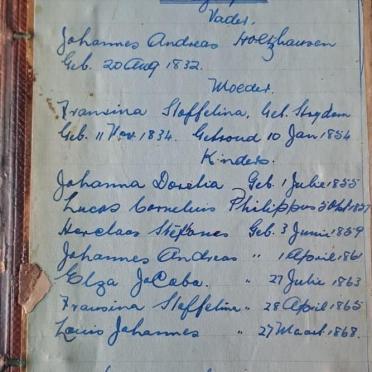 Vader.
Johannes Andreas Holtzhausen
Geb. 20 Aug 1832.
Moeder.
Fransina Stoffelina, Geb. Strydom
Geb. 11 Nov. 1834. Getroud 10 Jan 1854
Kinders.
Johanna Dorelia Geb. 1 Julie 1855
Lucas Cornelius Philippus 3 Okt 1857
Herclaas Stefanes Geb. 3 Junie 1859
Johannes Andreas " 1 April 1861
Elza JaCoba. " 27 Julie 1863
Fransina Stoffelina " 28 April 1865
Louis Johannes " 27 Maart 1868.